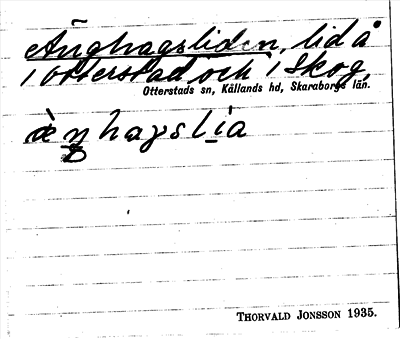 Änghagsliden, lid å
1 Otterstad och 1 Skog,
Otterstads sn, Kållands hd, Skaraborgs län.
THORVALD JONSSON 1935.